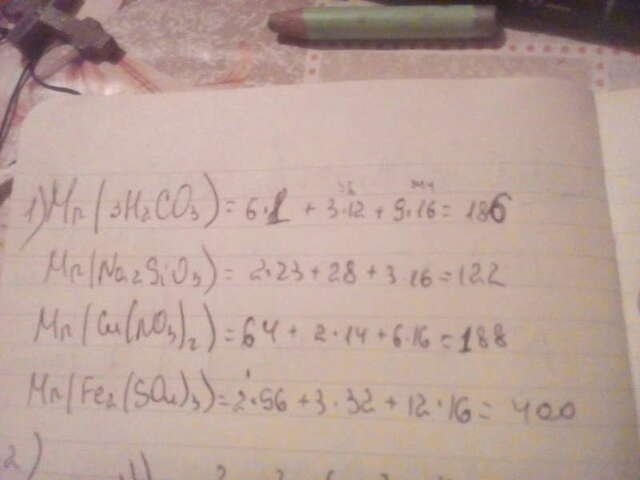 36 144
1) Mr(3H₂CO₃) = 6·1 + 3·12 + 9·16 = 186
Mr(Na₂SiO₃) = 2·23 + 28 + 3·16 = 122
Mr(Cu(NO₃)₂) = 64 + 2·14 + 6·16 = 188
Mr(Fe₂(SO₄)₃) = 2·56 + 3·32 + 12·16 = 400
2)